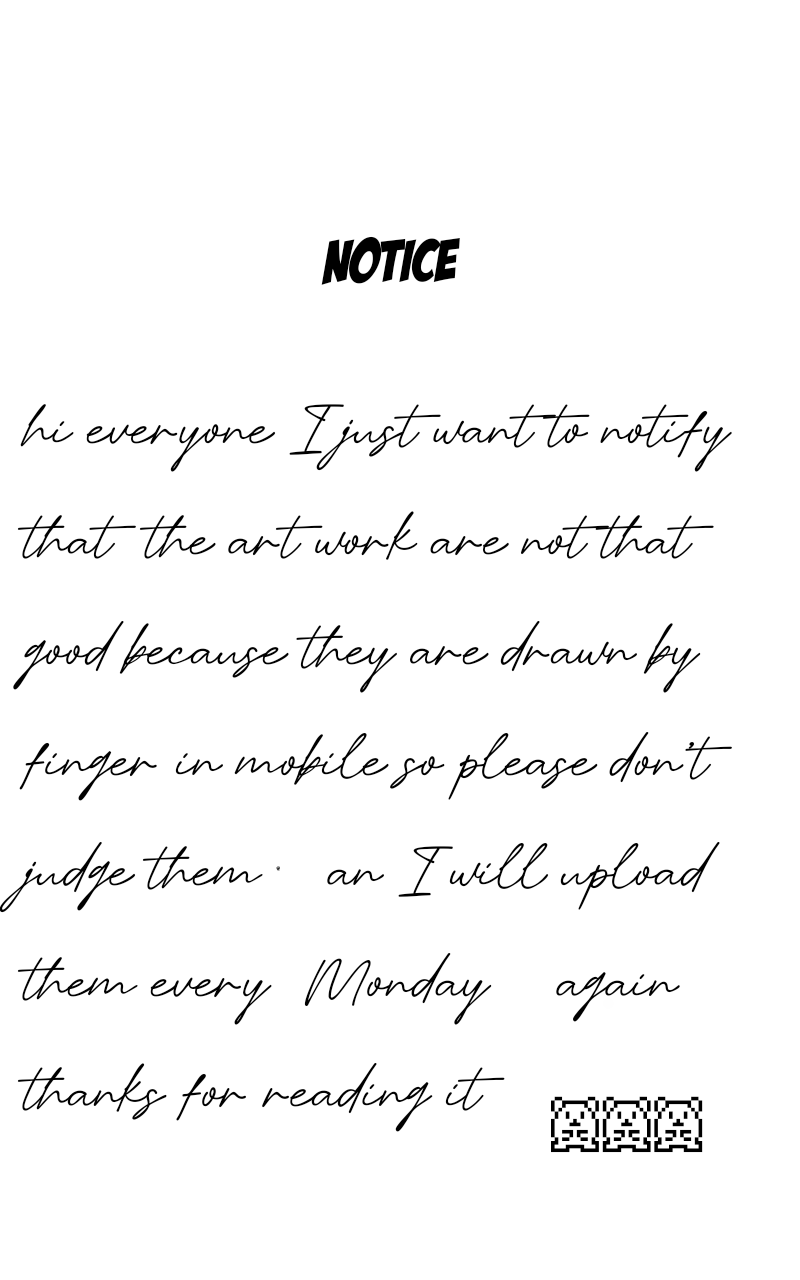 NOTICE
hi everyone I just want to notify
that the art work are not that
good because they are drawn by
finger in mobile so please don't
judge them . an I will upload
them every Monday again
thanks for reading it